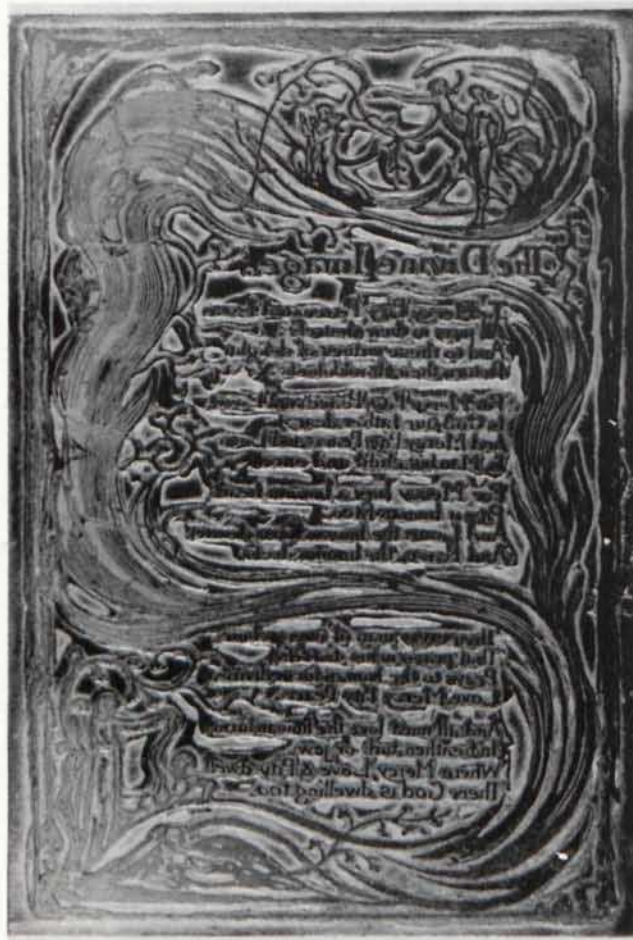 The Divine Image.
To Mercy Pity Peace and Love,
All pray in their distress:
And to these virtues of delight
Return their thankfulness.
For Mercy Pity Peace and Love,
Is God our father dear:
And Mercy Pity Peace and Love,
Is Man his child and care.
For Mercy has a human heart
Pity, a human face:
And Love, the human form divine,
And Peace, the human dress.
Then every man of every clime,
That prays in his distress,
Prays to the human form divine
Love Mercy Pity Peace.
And all must love the human form,
In heathen, turk or jew.
Where Mercy, Love & Pity dwell
There God is dwelling too.